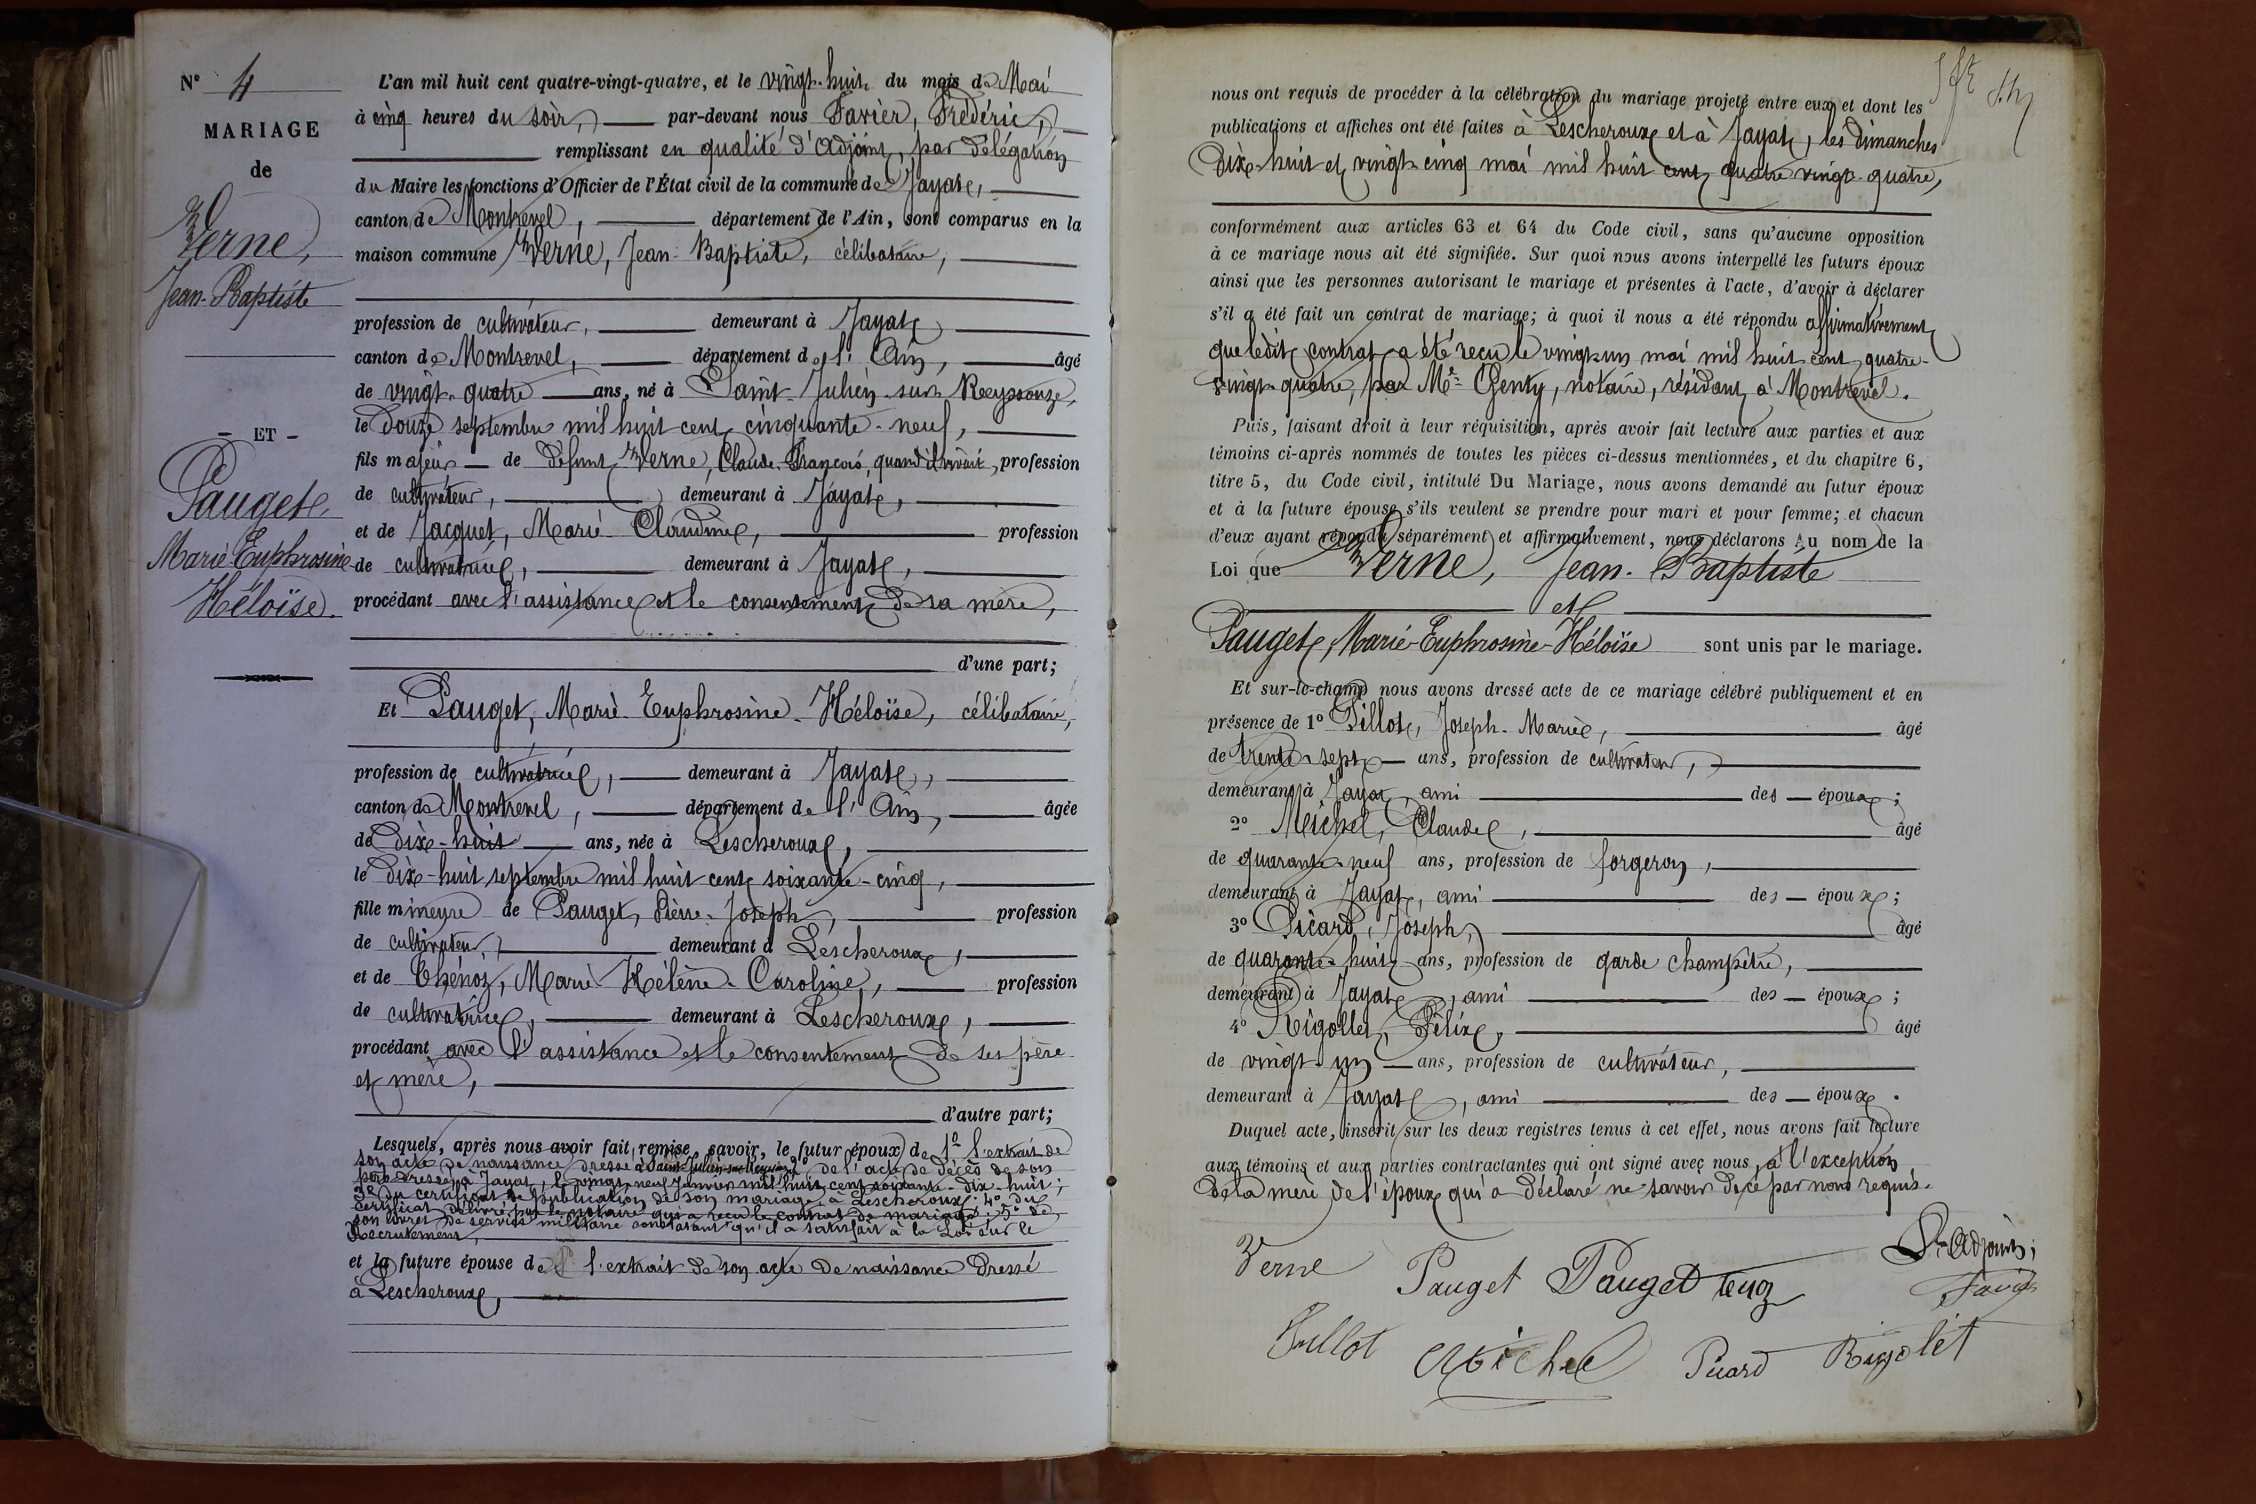 N° 4
MARIAGE
de
Verne,
Jean-Baptiste
- ET -
Pauget,
Marie Euphrosine
Héloïse.
L'an mil huit cent quatre-vingt-quatre, et le vingt-huit du mois de Mai
à cinq heures du soir, par-devant nous Favier, Frédéric,
remplissant en qualité d'Adjoint, par délégation
du Maire les fonctions d'Officier de l'État civil de la commune de Jayat,
canton de Montrevel, département de l'Ain, sont comparus en la
maison commune Verne, Jean-Baptiste, célibataire,
profession de cultivateur, demeurant à Jayat,
canton de Montrevel, département de l'Ain, âgé
de vingt-quatre ans, né à Saint-Julien-sur-Reyssouze,
le douze septembre mil huit cent cinquante-neuf,
fils majeur de défunt Verne, Claude-François, quand il vivait, profession
de cultivateur, demeurant à Jayat,
et de Jacquet, Marie-Claudine, profession
de cultivatrice, demeurant à Jayat,
procédant avec l'assistance et le consentement de sa mère,
d'une part;
Et Pauget, Marie-Euphrosine-Héloïse, célibataire,
profession de cultivatrice, demeurant à Jayat,
canton de Montrevel, département de l'Ain, âgée
de dix-huit ans, née à Lescheroux,
le dix-huit septembre mil huit cent soixante-cinq,
fille mineure de Pauget, Pierre-Joseph, profession
de cultivateur, demeurant à Lescheroux,
et de Thénoz, Marie-Hélène-Caroline, profession
de cultivatrice, demeurant à Lescheroux,
procédant avec l'assistance et le consentement de ses père
et mère,
d'autre part;
Lesquels, après nous avoir fait remise, savoir, le futur époux de 1° l'extrait de
son acte de naissance dressé à Saint-Julien-sur-Reyssouze; 2° de l'acte de décès de son
père dressé à Jayat, le vingt-neuf janvier mil huit cent soixante-dix-huit;
3° du certificat de publication de son mariage à Lescheroux; 4° du
certificat délivré par le notaire qui a reçu le contrat de mariage; 5° de
son livret de service militaire constatant qu'il a satisfait à la Loi sur le
Recrutement,
et la future épouse de l'extrait de son acte de naissance dressé
à Lescheroux,
nous ont requis de procéder à la célébration du mariage projeté entre eux et dont les
publications et affiches ont été faites à Lescheroux et à Jayat, les dimanches
dix-huit et vingt-cinq mai mil huit cent quatre-vingt-quatre,
conformément aux articles 63 et 64 du Code civil, sans qu'aucune opposition
à ce mariage nous ait été signifiée. Sur quoi nous avons interpellé les futurs époux
ainsi que les personnes autorisant le mariage et présentes à l'acte, d'avoir à déclarer
s'il a été fait un contrat de mariage; à quoi il nous a été répondu affirmativement
que ledit contrat a été reçu le vingt-un mai mil huit cent quatre-
vingt-quatre, par Me Genty, notaire, résidant à Montrevel.
Puis, faisant droit à leur réquisition, après avoir fait lecture aux parties et aux
témoins ci-après nommés de toutes les pièces ci-dessus mentionnées, et du chapitre 6,
titre 5, du Code civil, intitulé Du Mariage, nous avons demandé au futur époux
et à la future épouse s'ils veulent se prendre pour mari et pour femme; et chacun
d'eux ayant répondu séparément et affirmativement, nous déclarons Au nom de la
Loi que Verne, Jean-Baptiste
et
Pauget, Marie-Euphrosine-Héloïse sont unis par le mariage.
Et sur-le-champ nous avons dressé acte de ce mariage célébré publiquement et en
présence de 1° Pillot, Joseph-Marie, âgé
de trente-sept ans, profession de cultivateur,
demeurant à Jayat, ami des époux;
2° Michel, Claude, âgé
de quarante-neuf ans, profession de forgeron,
demeurant à Jayat, ami des époux;
3° Picard, Joseph, âgé
de quarante-huit ans, profession de garde champêtre,
demeurant à Jayat, ami des époux;
4° Rigollet, Félix, âgé
de vingt-un ans, profession de cultivateur,
demeurant à Jayat, ami des époux.
Duquel acte, inscrit sur les deux registres tenus à cet effet, nous avons fait lecture
aux témoins et aux parties contractantes qui ont signé avec nous, à l'exception
de la mère de l'époux qui a déclaré ne savoir de ce par nous requis.
L'Adjoint;
Verne Pauget Pauget Favier
Pillot Michel Picard Rigolet